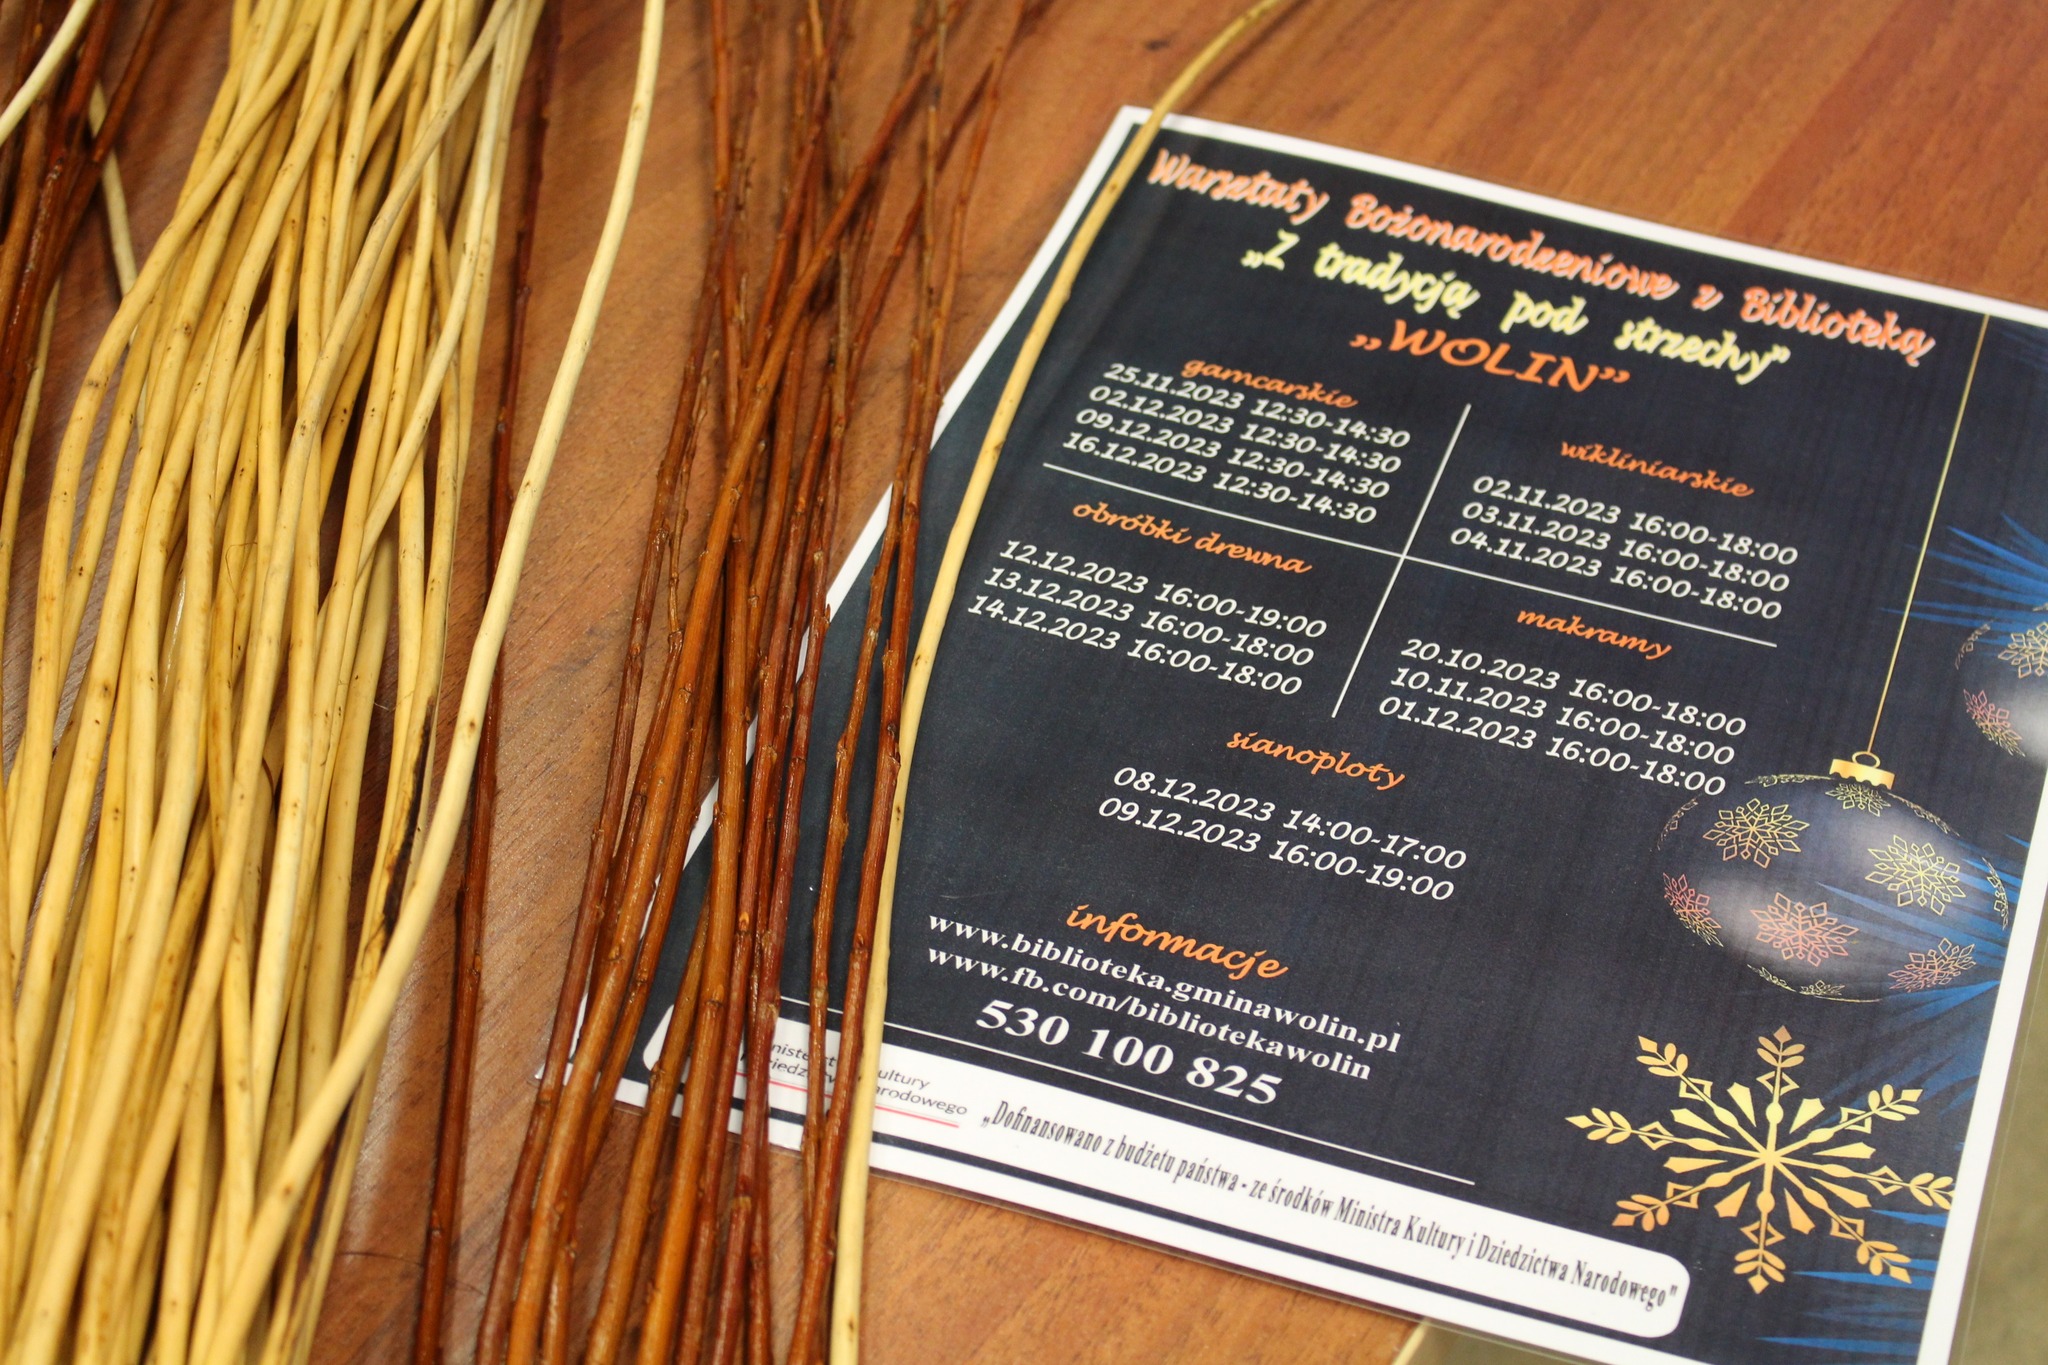 Warsztaty Bożonarodzeniowe z Biblioteką
„Z tradycją pod strzechy”
„WOLIN”
garncarskie
25.11.2023 12:30-14:30
02.12.2023 12:30-14:30
09.12.2023 12:30-14:30
16.12.2023 12:30-14:30
wikliniarskie
02.11.2023 16:00-18:00
03.11.2023 16:00-18:00
04.11.2023 16:00-18:00
obróbki drewna
12.12.2023 16:00-19:00
13.12.2023 16:00-18:00
14.12.2023 16:00-18:00
makramy
20.10.2023 16:00-18:00
10.11.2023 16:00-18:00
01.12.2023 16:00-18:00
sianoploty
08.12.2023 14:00-17:00
09.12.2023 16:00-19:00
informacje
www.biblioteka.gminawolin.pl
www.fb.com/bibliotekawolin
530 100 825
„Dofinansowano z budżetu państwa - ze środków Ministra Kultury i Dziedzictwa Narodowego"